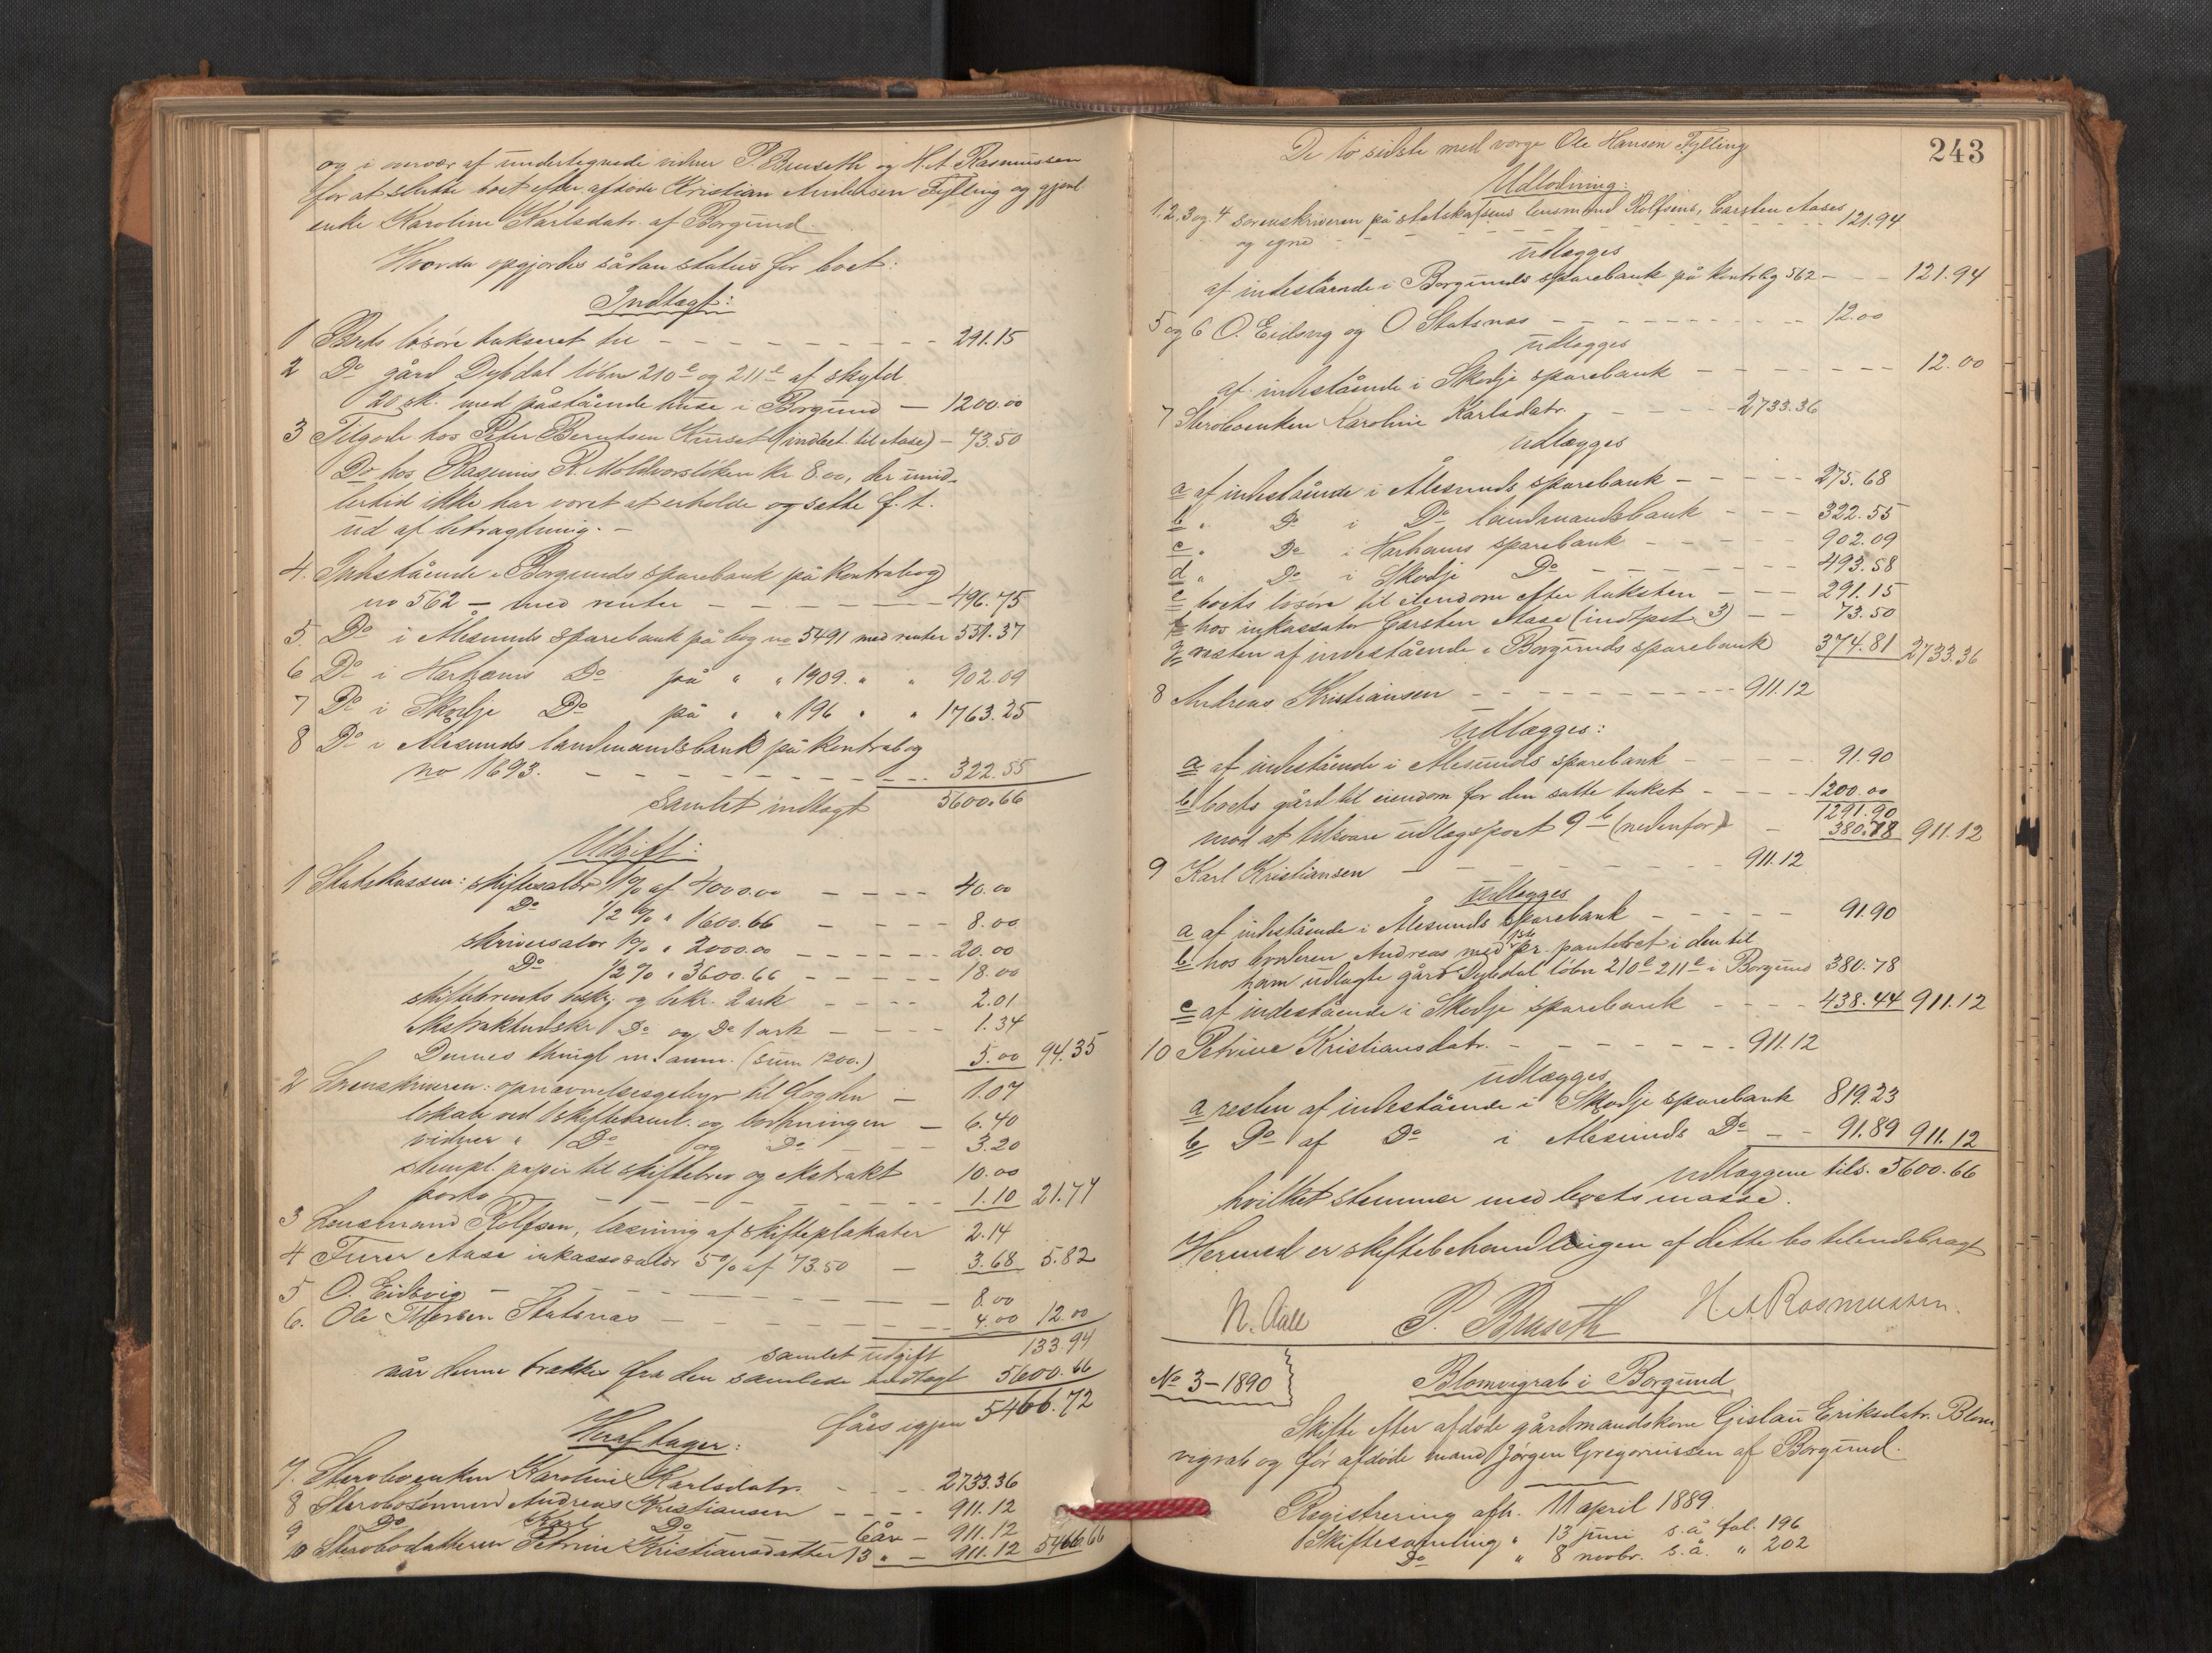 og i overvær af undertegnede vidner P. Bruseth og H. A. Rasmussen
for at slutte boet efter afdøde Kristian Andersen Fylling og gjenl.
enke Karoline Karlsdatr. af Borgund.
Hvorda opgjordes sådan status for boet:
Indtægt:
1 Boets løsøre takseret til - - - 291.15
2 Do gård Dybdal løbno 210e og 211e af skyld
20 sk. med påstående huse i Borgund - 1200.00
3 Tilgode hos Peter Berntsen Hurset (indbet. til Aase) - 73.50
Do hos Rasmus R. Moldværsliken kr 8.00, der imid-
lertid ikke har været at erholde og sætte f. t.
ud af betragtning. -
4. Indestående i Borgunds sparebank på kontrabog
no 562 - med renter - - - 496.75
5. Do i Ålesunds sparebank på bog no 5491 med renter 551.37
6 Do i Harhams Do på " " 1909. " " 902.09
7 Do i Skodje Do på " " 196 " " 1763.25
8 Do i Ålesunds landmandsbank på kontrabog
no 1693. - - - 322.55
samlet indtægt 5600.66
Udgift:
1 Statskassen: skiftesalær 1% af 4000.00 - - - 40.00
Do 1/2 % " 1600.66 - - - 8.00
skriversalær 1% " 2000.00 - - - 20.00
Do 1/2 % " 3600.66 - - - 18.00
skiftebrevets besk. og bekr. 2 ark - - - 2.01
Ekstraktudskr Do og Do 1 ark - - - 1.34
Dennes thingl. m. ann. (sum 1200.) 5.00 94.35
2 Sorenskriveren: opnævnelsesgebyr til fogden - 1.07
lokale ved 1 skiftesaml. og slutningen - 6.40
vidner " 1 Do og Do - 3.20
stempl. papir til skiftebrev og ekstrakt 10.00
porto - - - 1.10 21.77
3 Lensmand Rolfsen, læsning af skifteplakater 2.14
4 Furer Aase inkassosalær 5% af 73.50 - 3.68 5.82
5 O. Eidsvig - - - 8.00
6. Ole Petersen Statsnæs - - - 4.00 12.00
samlet udgift 133.94
når denne trækkes fra den samlede indtægt 5600.66
fåes igjen 5466.72
Heraf tager:
7. Stervboenken Karoline Karlsdatr. - - - 2733.36
8 Stervbosønnen Andreas Kristiansen - - - 911.12
9 Do Karl Do 6 år - 911.12
10 Stervbodatteren Petrine Kristiansdatter 13 " - 911.12 5466.66
243
De to sidste med værge Ole Hansen Fylling
Udlodning:
1. 2, 3 og 4 sorenskriveren på statskassens, lensmand Rolfsens, Carsten Aases
og egne - - - 121.94
udlægges
af indestående i Borgunds sparebank på kontrbog 562 - - - 121.94
5 og 6 O. Eidsvig og O Statsnæs - - - 12.00
udlægges
af indestående i Skodje sparebank - - - 12.00
7 Stervboenken Karoline Karlsdatr. - - - 2733.36
udlægges
a af indestående i Ålesunds sparebank - - - 275.68
b " Do i Do landmandsbank - - - 322.55
c " Do i Harhams sparebank - - - 902.09
d " Do i Skodje Do - - - 493.58
e boets løsøre til eiendom efter taksten - - - 291.15
f hos inkassator Carsten Aase (indtpst 3) - - 73.50
g resten af indestående i Borgunds sparebank 374.81 2733.36
8 Andreas Kristiansen - - - 911.12
Udlægges:
a af indestående i Ålesunds sparebank - - - 91.90
b boets gård til eiendom for den satte takst - - - 1200.00
1291.90
mod at tilsvare udlægspost 9 b (nedenfor) - 380.78 911.12
9 Karl Kristiansen - - - 911.12
udlægges
a af indestående i Ålesunds sparebank - - - 91.90
b hos broderen Andreas med 1ste pr. panteret i den til
ham udlagte gård Dybdal løbno 210e 211e i Borgund 380.78
c af indestående i Skodje sparebank - - - 438.44 911.12
10 Petrine Kristiansdatr. - - - 911.12
udlægges
a resten af indestående i Skodje sparebank 819.23
b Do af Do i Ålesunds Do - - 91.89 911.12
udlæggene tils. 5600.66
hvilket stemmer med boets masse.
Hermed er skiftebehandlingen af dette bo tilendebragt
N. Aall P. Bruseth H. A. Rasmussen.
No 3-1890
Blomvigrab i Borgund
Skifte efter afdøde gårdmandskone Gislau Eriksdatr. Blom-
vigrab og før afdøde mand Jørgen Gregoriussen af Borgund.
Registrering afh. 11 april 1889.
1 Skiftesamling " 13 juni s. å fol. 196
Do " 8 novbr. s. å. " 202